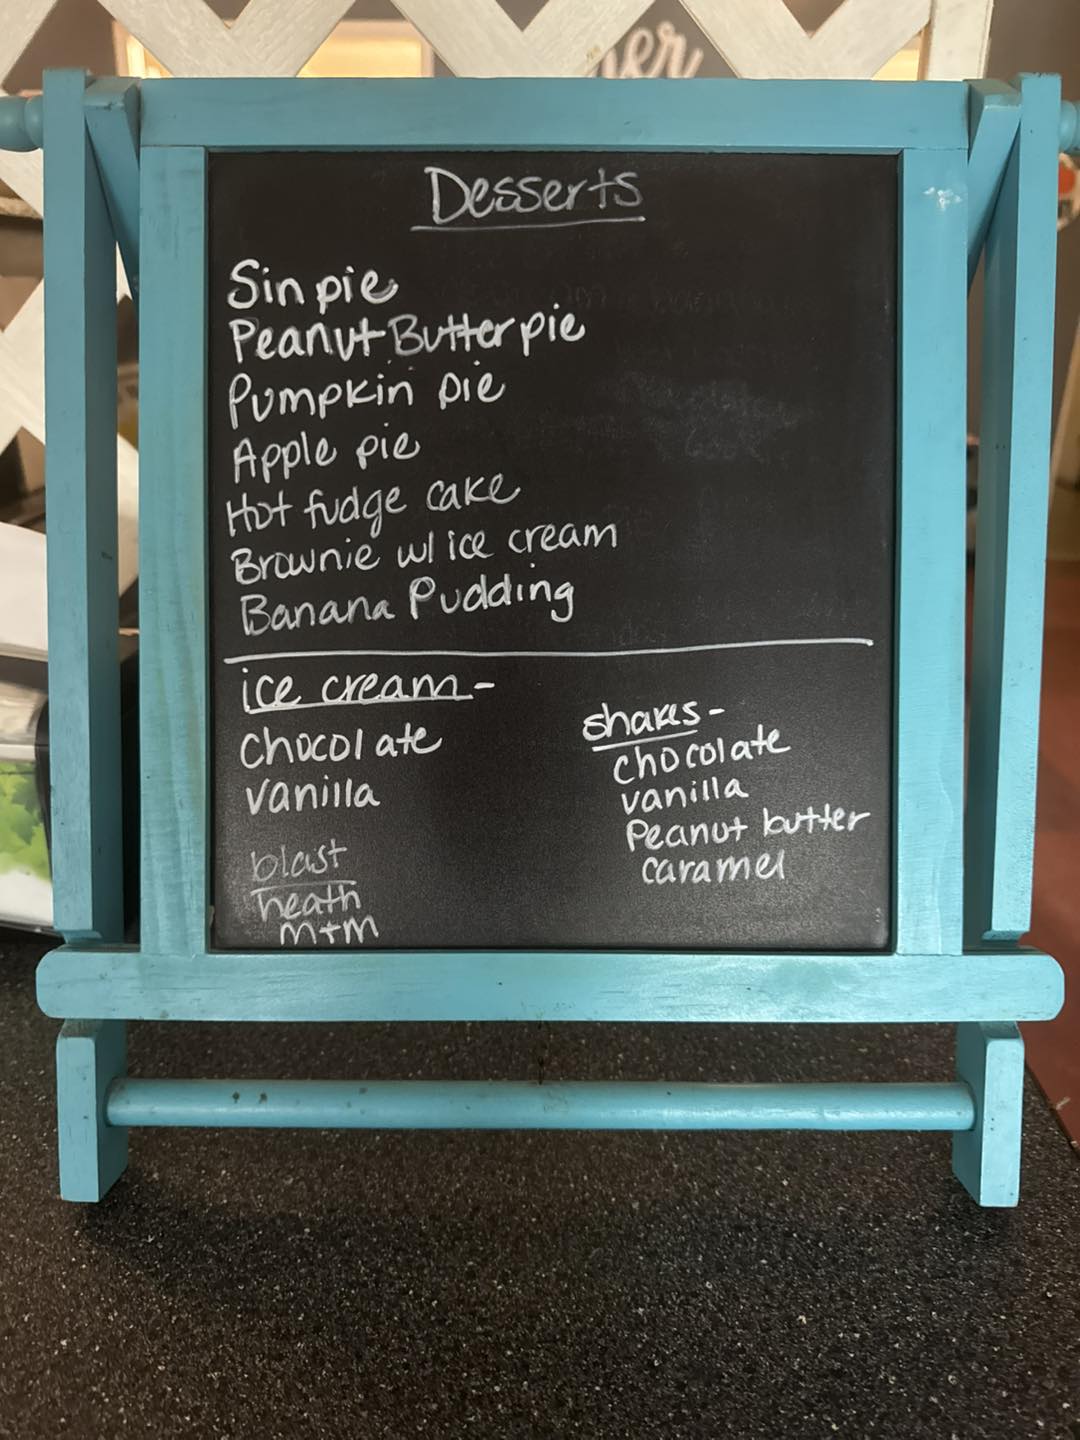 Desserts
Sin pie
Peanut Butter pie
Pumpkin pie
Apple pie
Hot fudge cake
Brownie w/ ice cream
Banana Pudding
ice cream-
Chocolate
vanilla
blast
heath
M+M
shakes-
chocolate
vanilla
Peanut butter
caramel